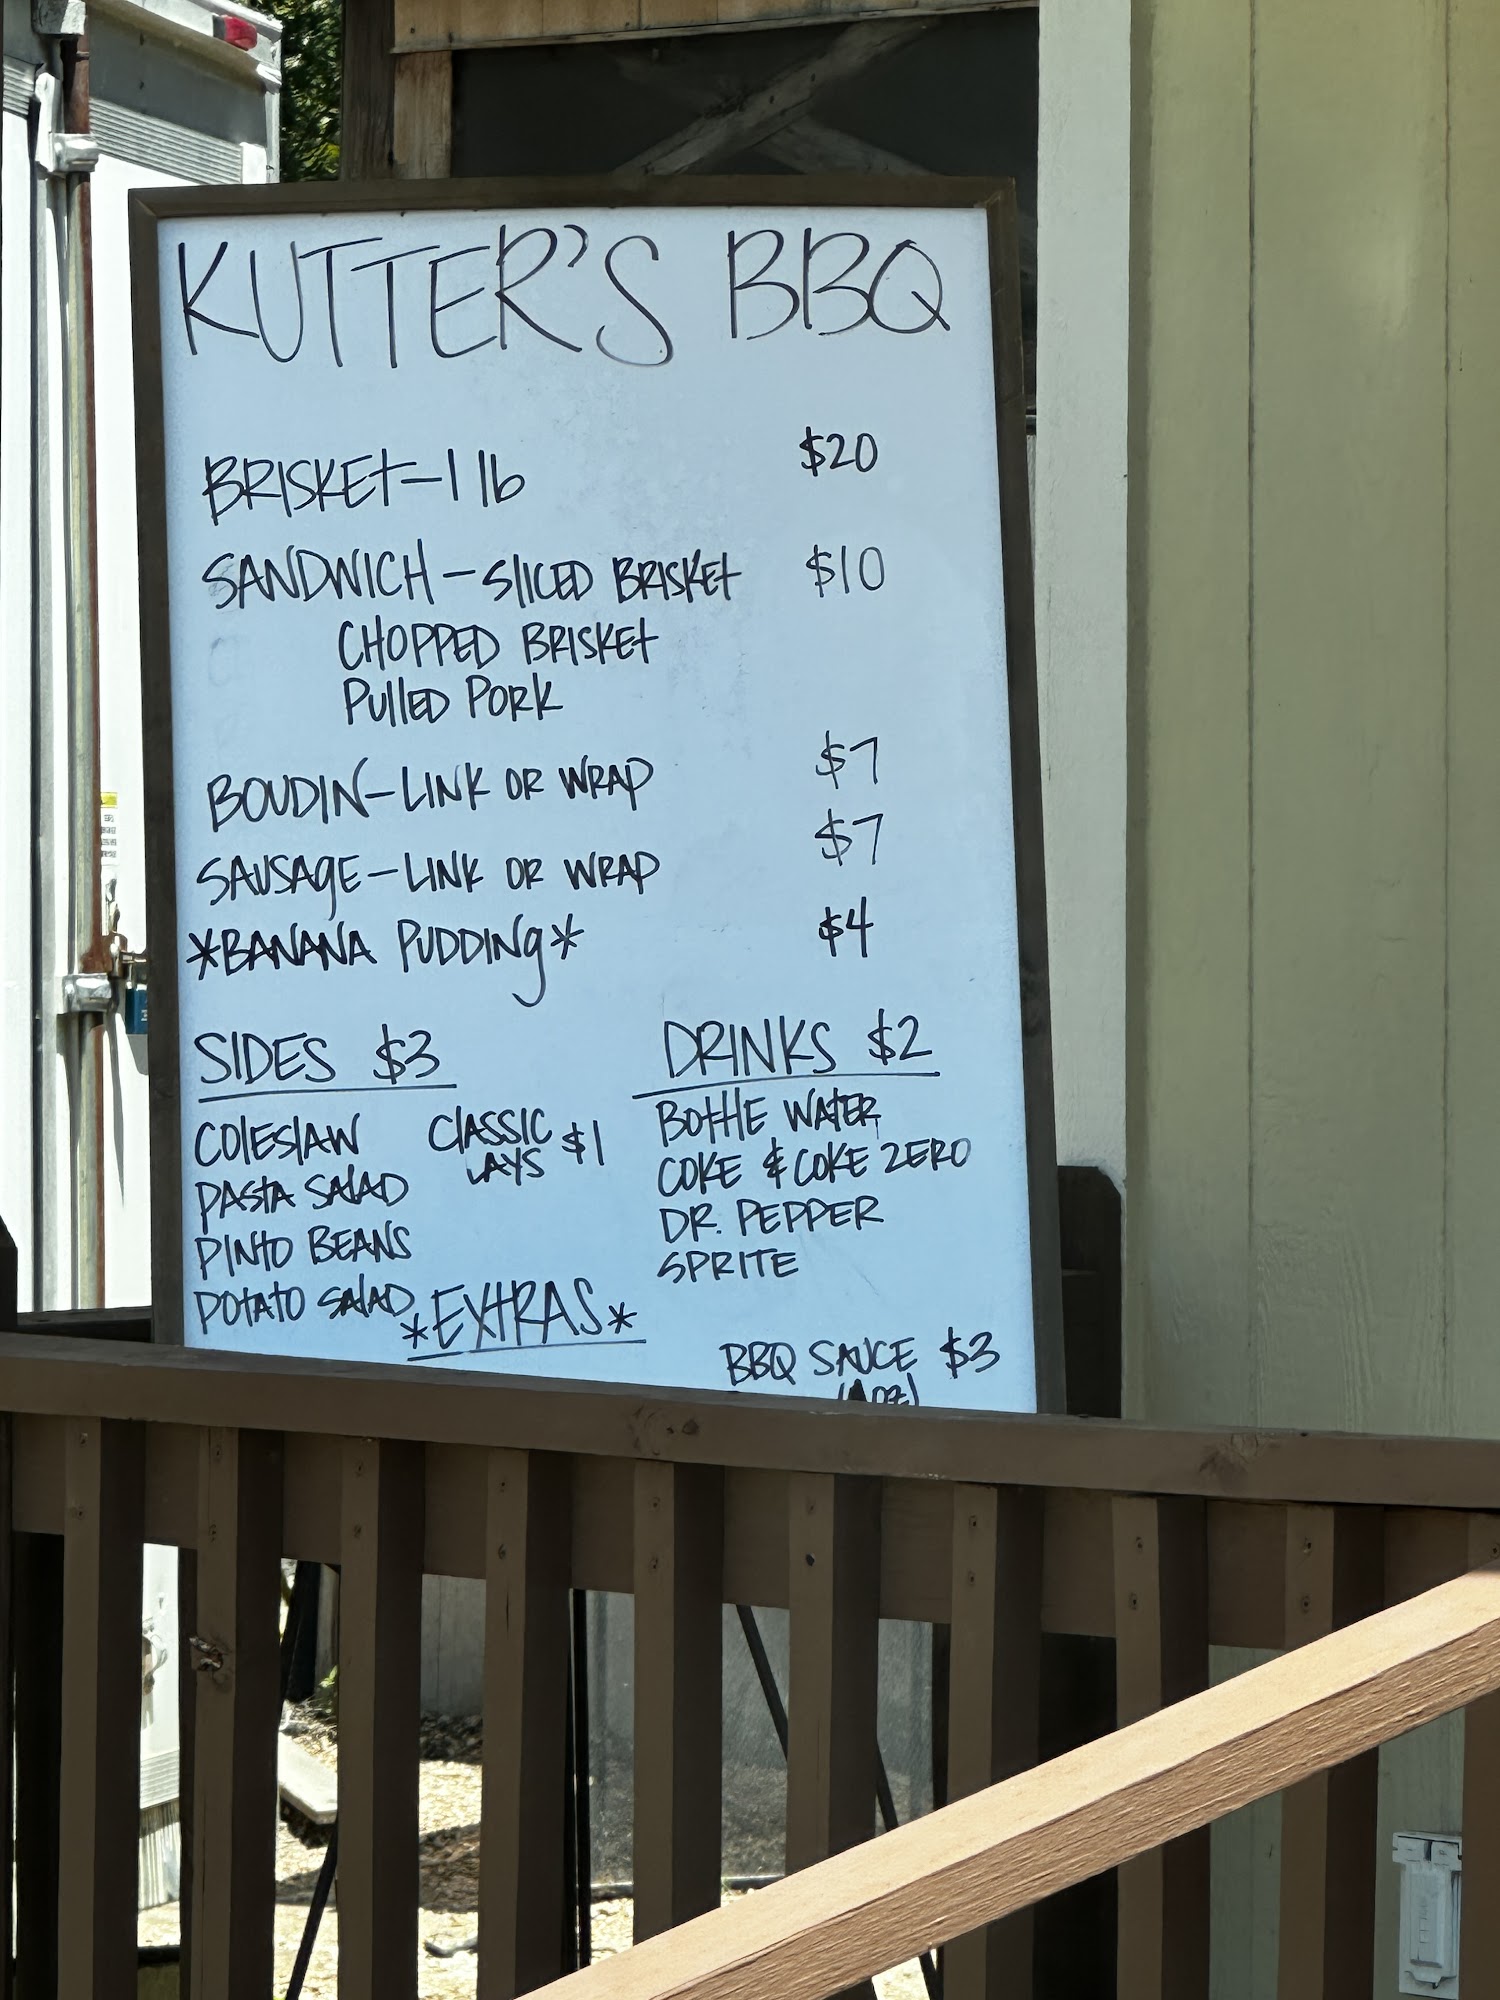 KUTTER'S BBQ
BRISKET-1 lb $20
SANDWICH - SLICED BRISKET $10
CHOPPED BRISKET
PULLED PORK
BOUDIN-LINK OR WRAP $7
SAUSAGE-LINK OR WRAP $7
*BANANA PUDDING* $4
SIDES $3
COLESLAW
PASTA SALAD
PINTO BEANS
POTATO SALAD
CLASSIC LAYS $1
DRINKS $2
BOTTLE WATER
COKE & COKE ZERO
DR. PEPPER
SPRITE
*EXTRAS*
BBQ SAUCE $3